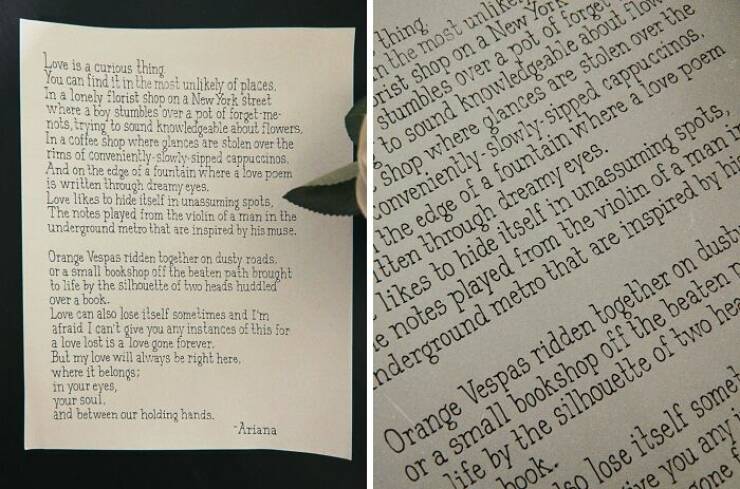 Love is a curious thing.
You can find it in the most unlikely of places.
In a lonely florist shop on a New York street
where a boy stumbles over a pot of forget-me-
nots, trying to sound knowledgeable about flowers.
In a coffee shop where glances are stolen over the
rims of conveniently-slowly-sipped cappuccinos.
And on the edge of a fountain where a love poem
is written through dreamy eyes.
Love likes to hide itself in unassuming spots,
The notes played from the violin of a man in the
underground metro that are inspired by his muse.
Orange Vespas ridden together on dusty roads.
or a small bookshop off the beaten path brought
to life by the silhouette of two heads huddled
over a book.
Love can also lose itself sometimes and I'm
afraid I can't give you any instances of this for
a love lost is a love gone forever.
But my love will always be right here,
where it belongs:
in your eyes,
your soul,
and between our holding hands.
-Ariana
thing.
the most unlike
rist shop on a New York
stumbles over a pot of forget
to sound knowledgeable about flow
shop where glances are stolen over the
conveniently-slowly-sipped cappuccinos.
the edge of a fountain where a love poem
tten through dreamy eyes.
likes to hide itself in unassuming spots,
e notes played from the violin of a man in
nderground metro that are inspired by his
Orange Vespas ridden together on dusty
or a small bookshop off the beaten p
life by the silhouette of two hea
book.
so lose itself somet
ive you any i
gone f